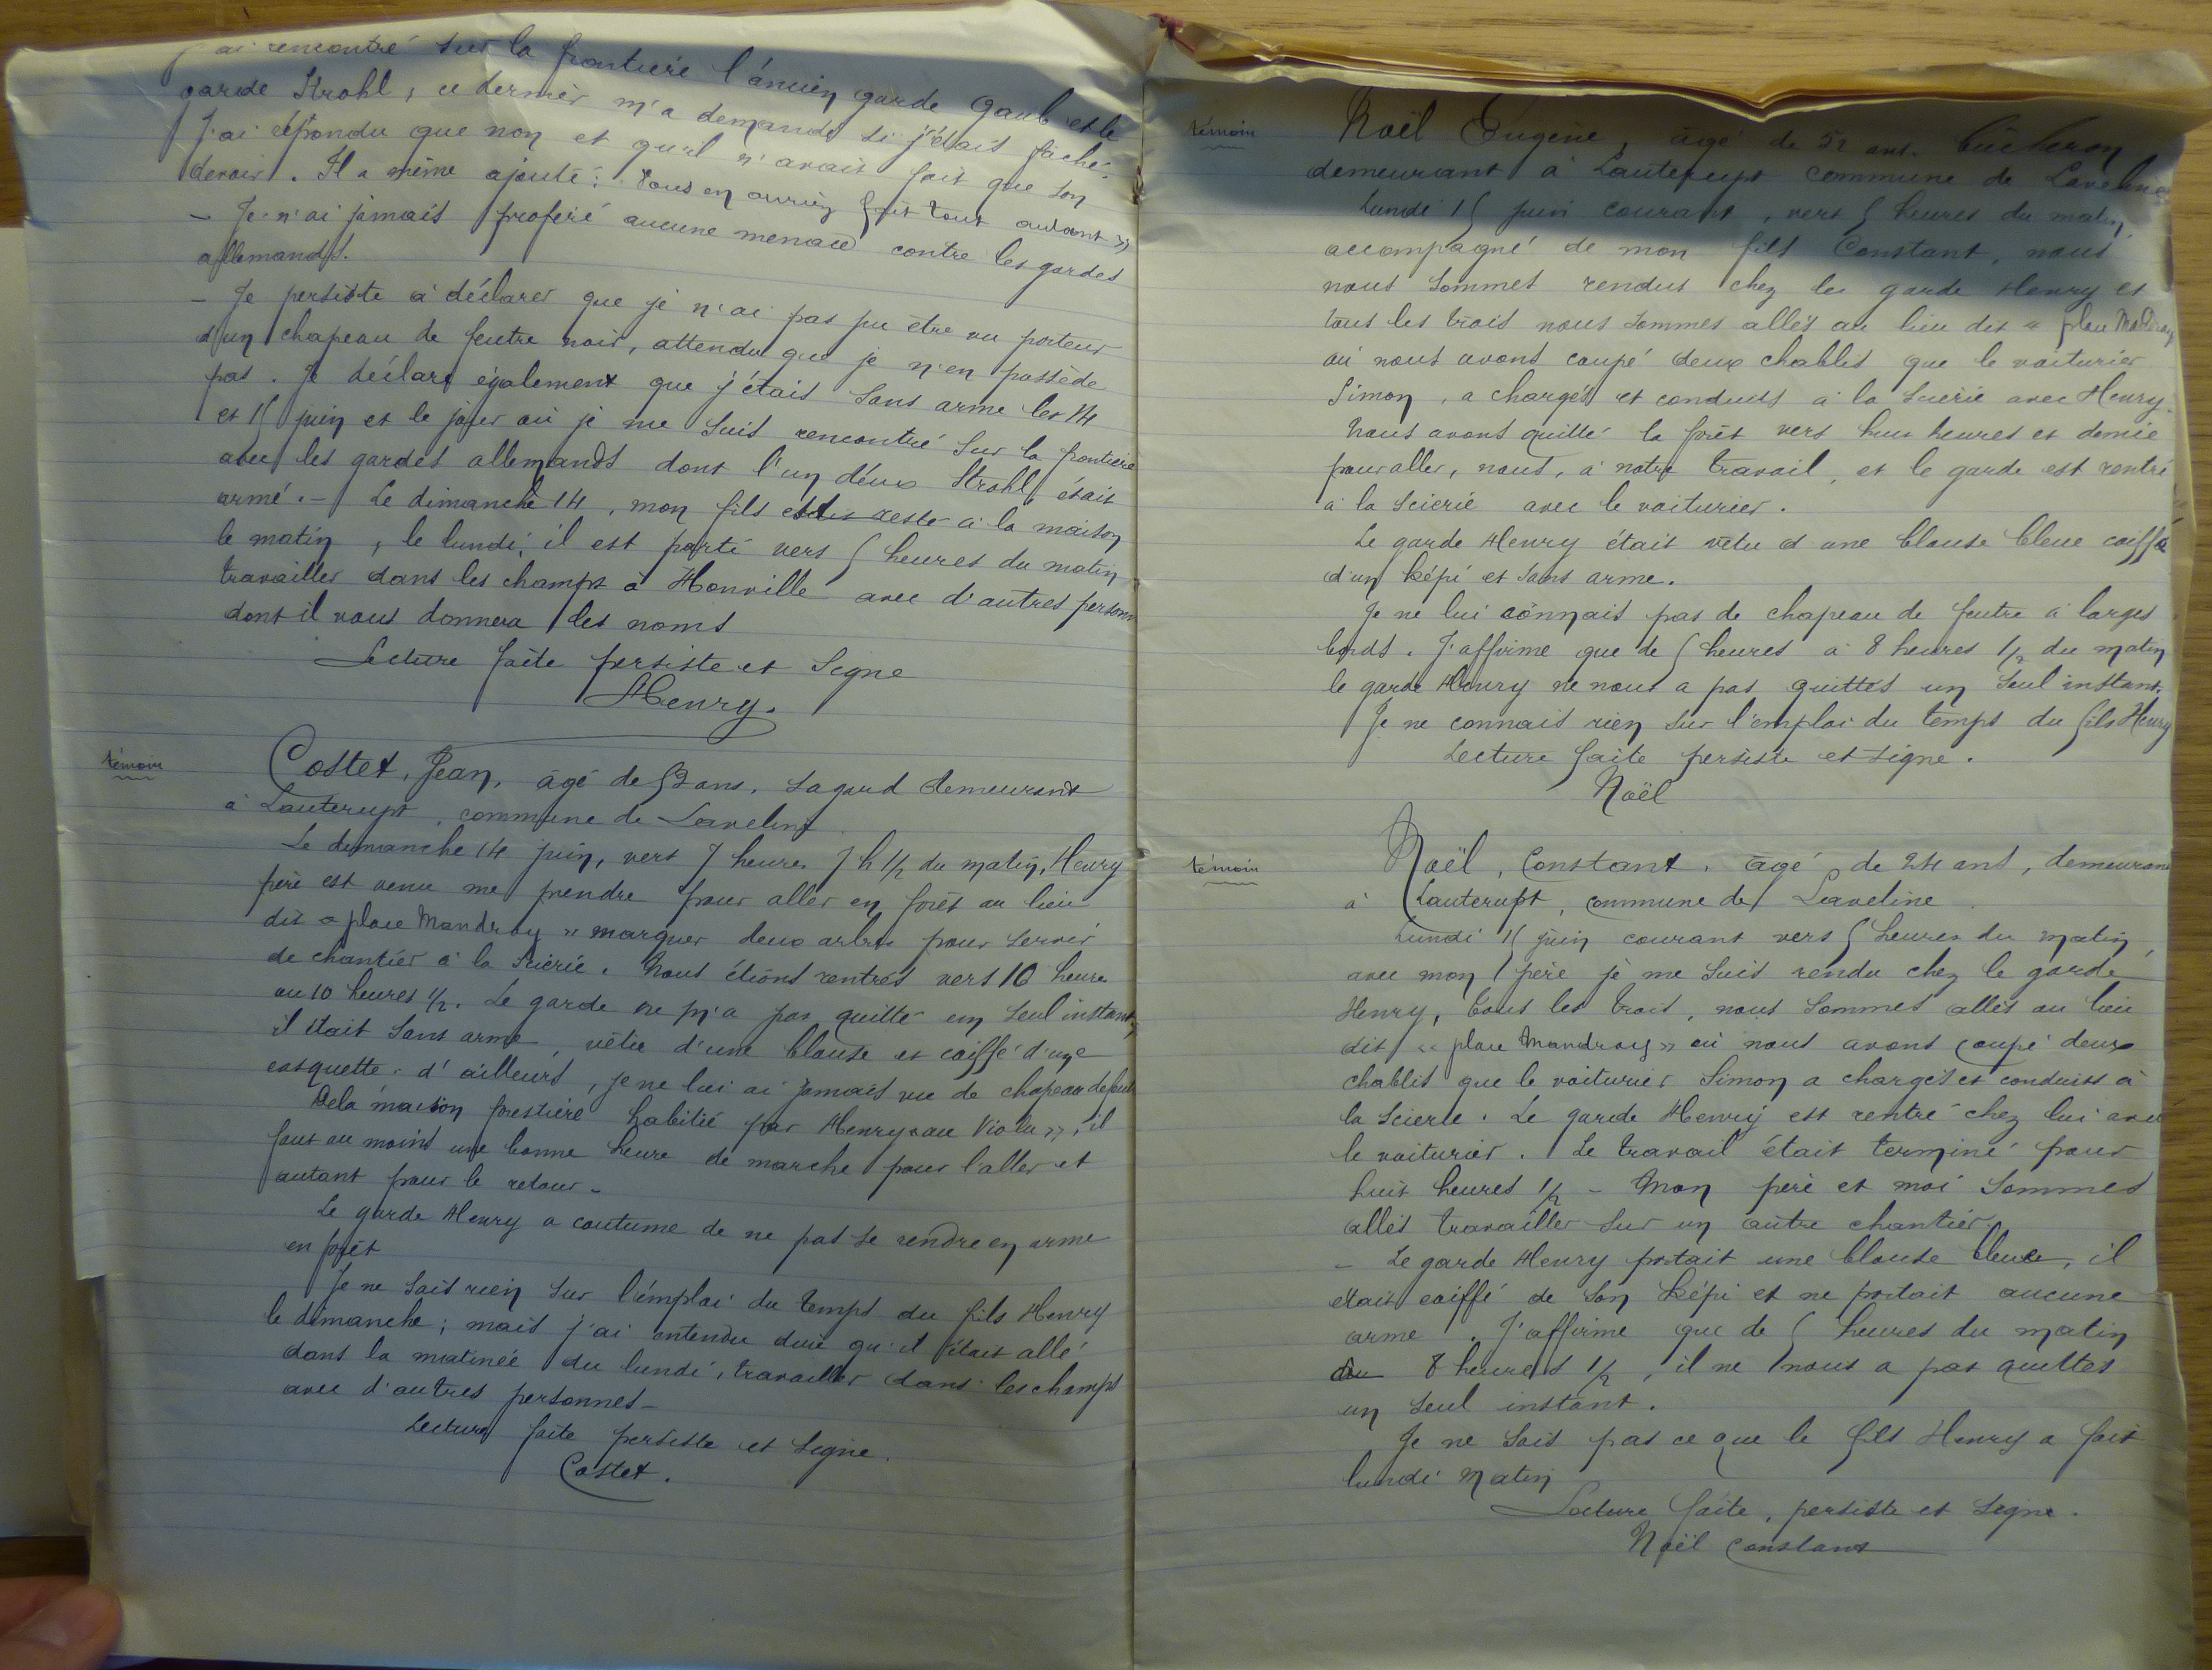 j'ai rencontré sur la frontière l'ancien garde Gaub et le
garde Strohl, ce dernier m'a demandé si j'étais fâché.
J'ai répondu que non et qu'il n'avait fait que son
devoir. Il a même ajouté: Vous en auriez fait tout autant »
- Je n'ai jamais proféré aucune menace contre les gardes
allemands.
- Je persiste à déclarer que je n'ai pas pu être vu porteur
d'un chapeau de feutre noir, attendu que je n'en possède
pas. Je déclare également que j'étais sans arme les 14
et 15 juin et le jour où je me suis rencontré sur la frontière
avec les gardes allemands dont l'un d'eux Strohl, était
armé. - Le dimanche 14, mon fils est resté à la maison
le matin, le lundi, il est parti vers 5 heures du matin
travailler dans les champs à Honville avec d'autres personn
dont il vous donnera les noms
Lecture faite persiste et signe
Henry.
témoin
Costet, Jean, âgé de 52 ans, sagard demeurant
à Lauterupt, commune de Laveline
Le dimanche 14 juin, vers 7 heures 7 h 1/2 du matin, Henry
père est venu me prendre pour aller en forêt au lieu
dit « place Mandray » marquer deux arbres pour servir
de chantier à la scierie. Nous étions rentrés vers 10 heures
ou 10 heures 1/2. Le garde ne m'a pas quitté un seul instant,
il était sans arme, vêtu d'une blouse et coiffé d'une
casquette. d'ailleurs, je ne lui ai jamais vu de chapeau de feut
De la maison forestière habitée par Henry « au Violu », il
faut au moins une bonne heure de marche pour l'aller et
autant pour le retour -
Le garde Henry a coutume de ne pas se rendre en arme
en forêt
Je ne sais rien sur l'emploi du temps du fils Henry
le dimanche; mais j'ai entendu dire qu'il était allé
dans la matinée du lundi, travailler dans les champs
avec d'autres personnes -
Lecture faite persiste et signe.
Costet.
témoin
Noël Eugène, âgé de 52 ans, bûcheron
demeurant à Lauterupt commune de Laveline
Lundi 15 juin courant, vers 5 heures du matin,
accompagné de mon fils Constant, nous
nous sommes rendus chez le garde Henry et
tous les trois nous sommes allés au lieu dit « place Mandray
où nous avons coupé deux chablis que le voiturier
Simon, a chargés et conduits à la scierie avec Henry.
Nous avons quitté la forêt vers huit heures et demie
pour aller, nous, à notre travail, et le garde est rentré
à la scierie avec le voiturier.
Le garde Henry était vêtu d'une blouse bleue coiffé
d'un képi et sans arme.
Je ne lui connais pas de chapeau de feutre à larges
bords. J'affirme que de 5 heures à 8 heures 1/2 du matin
le garde Henry ne nous a pas quittés un seul instant.
Je ne connais rien sur l'emploi du temps du fils Henry
Lecture faite persiste et signe.
Noël
témoin
Noël, Constant, âgé de 24 ans, demeurant
à Lauterupt, commune de Laveline.
Lundi 15 juin courant vers 5 heures du matin,
avec mon père je me suis rendu chez le garde
Henry, tous les trois, nous sommes allés au lieu
dit « place Mandray » où nous avons coupé deux
chablis que le voiturier Simon a chargés et conduits à
la scierie. Le garde Henry est rentré chez lui avec
le voiturier. Le travail était terminé pour
huit heures 1/2 - Mon père et moi sommes
allés travailler sur un autre chantier.
- Le garde Henry portait une blouse bleue, il
était coiffé de son képi et ne portait aucune
arme. J'affirme que de 5 heures du matin
à 8 heures 1/2, il ne nous a pas quittés
un seul instant.
Je ne sais pas ce que le fils Henry a fait
lundi matin
Lecture faite, persiste et signe.
Noël Constant